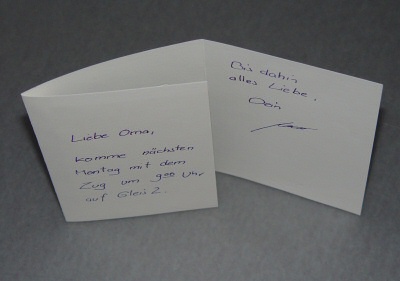 Liebe Oma,
komme nächsten
Montag mit dem
Zug um 9⁰⁰ Uhr
auf Gleis 2.
Bis dahin
alles Liebe,
Dein